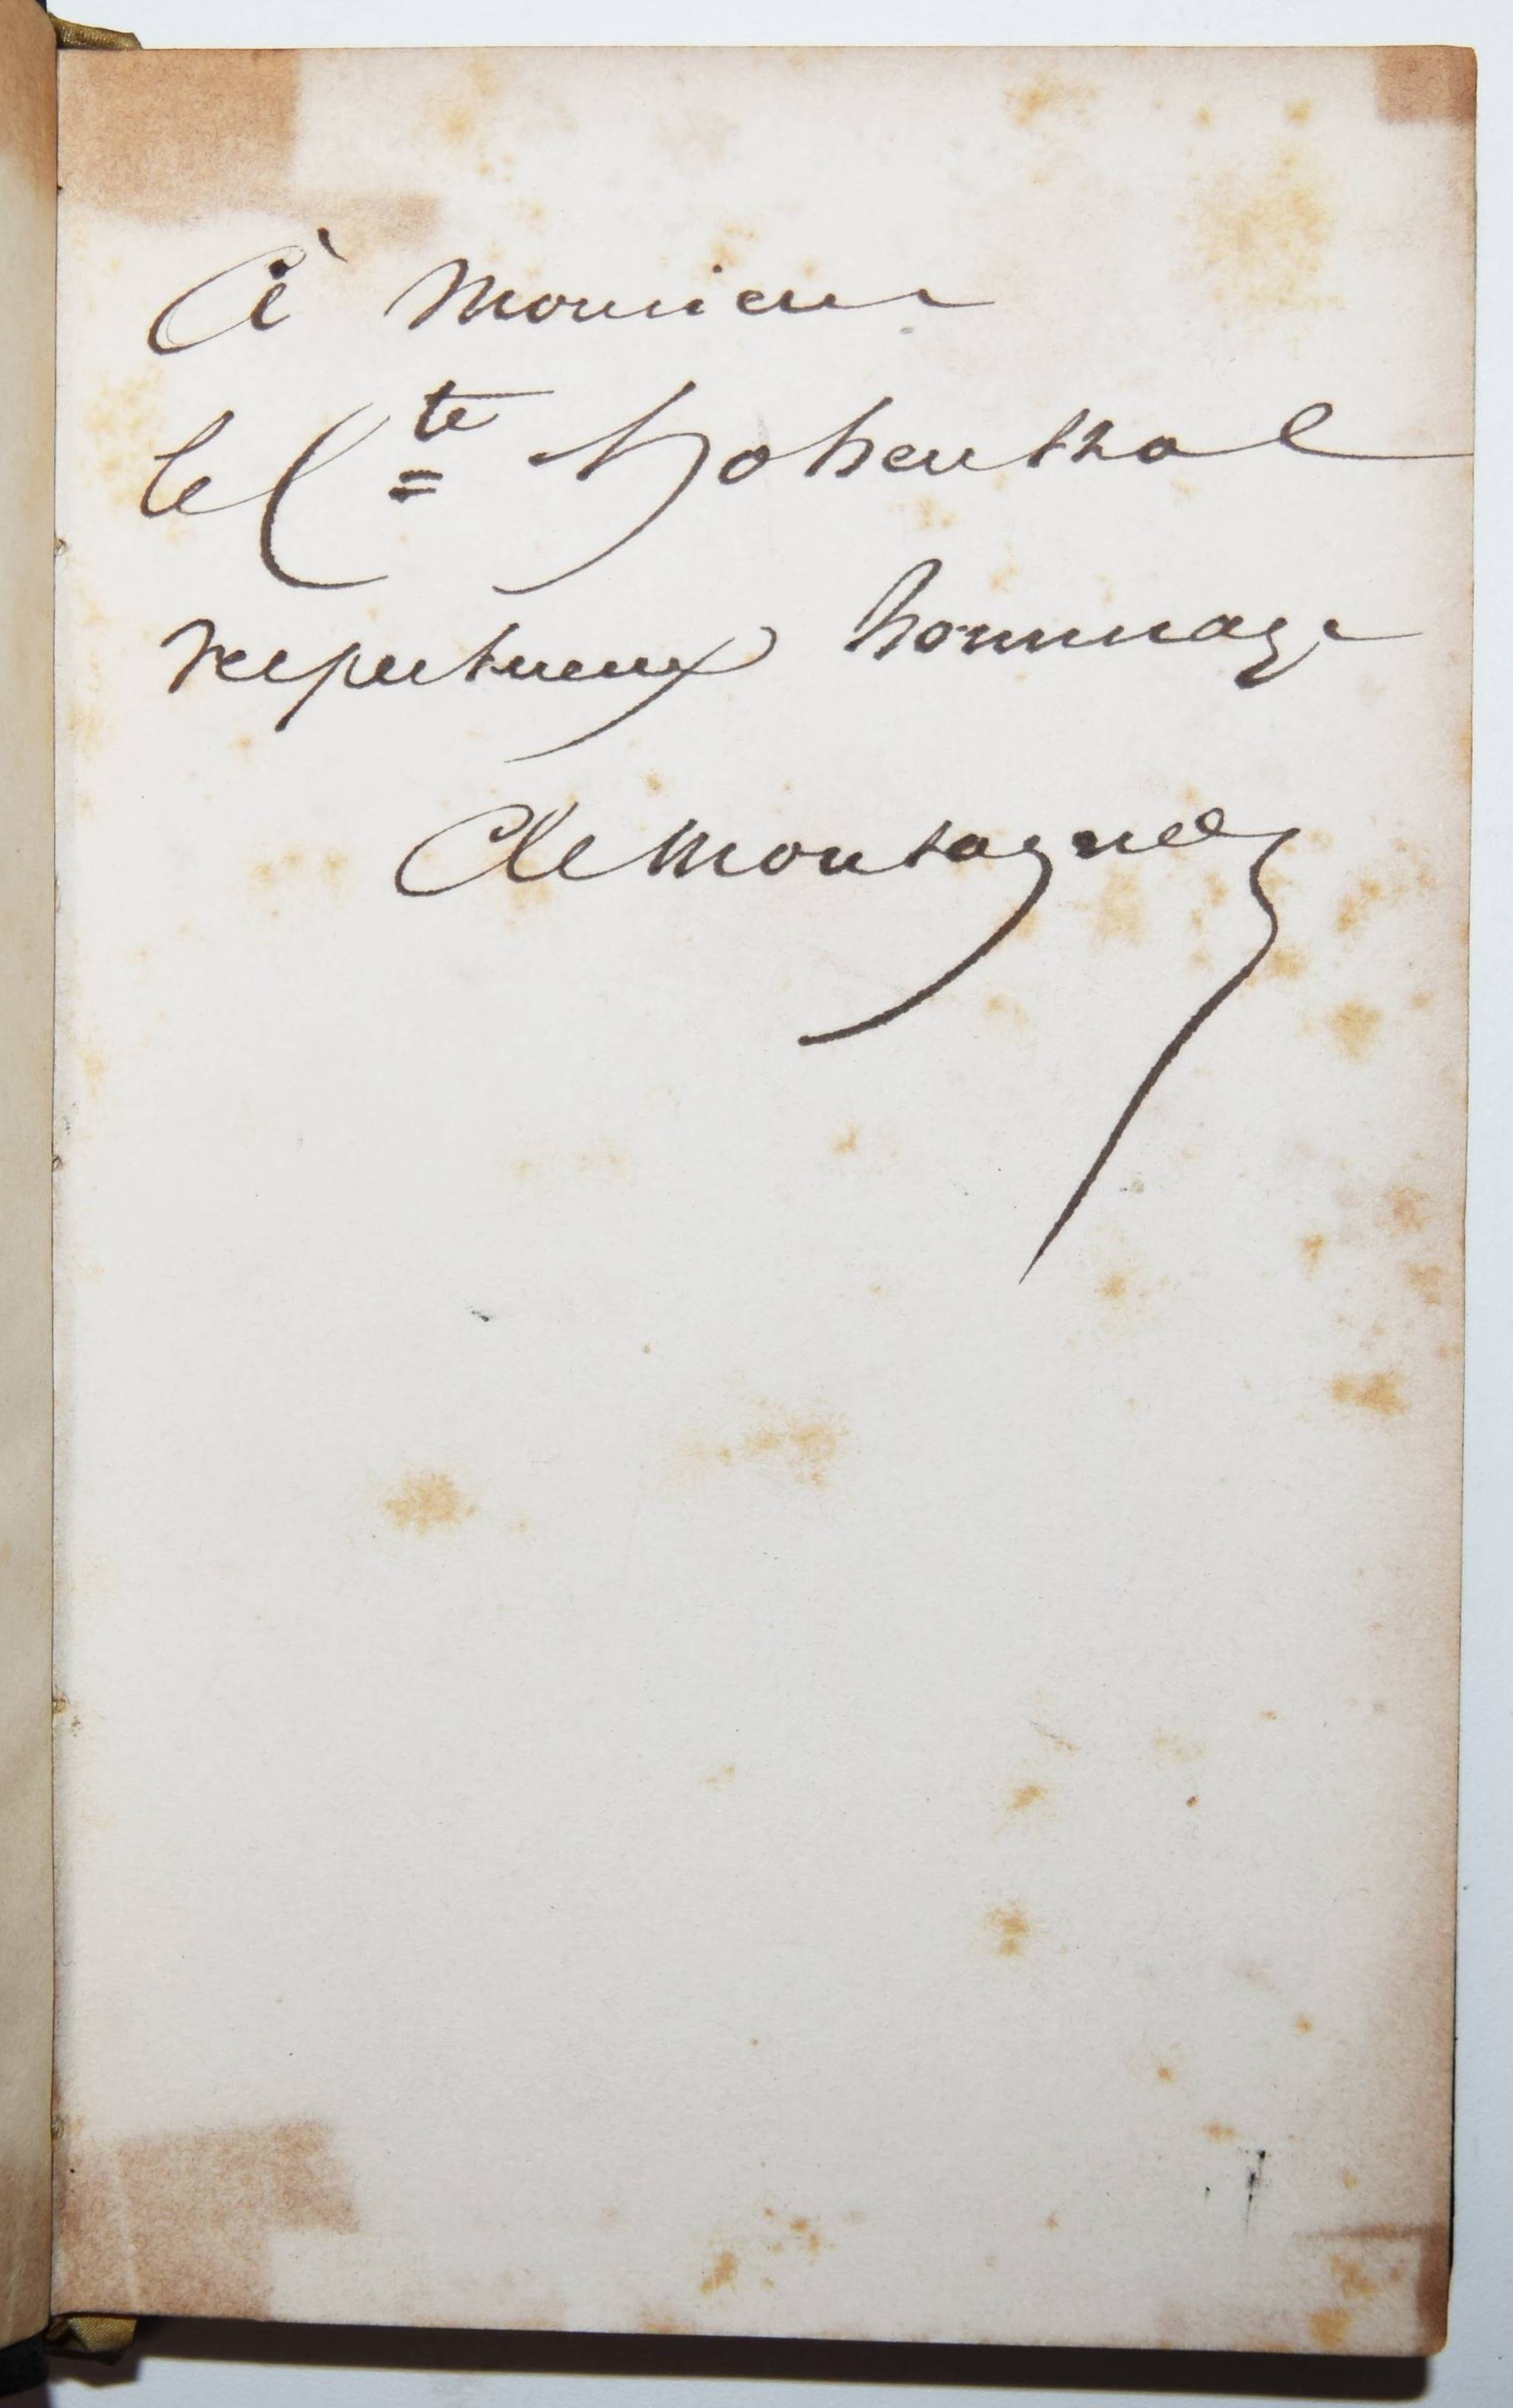 À Monsieur
le Cte Hohenthal
respectueux hommage